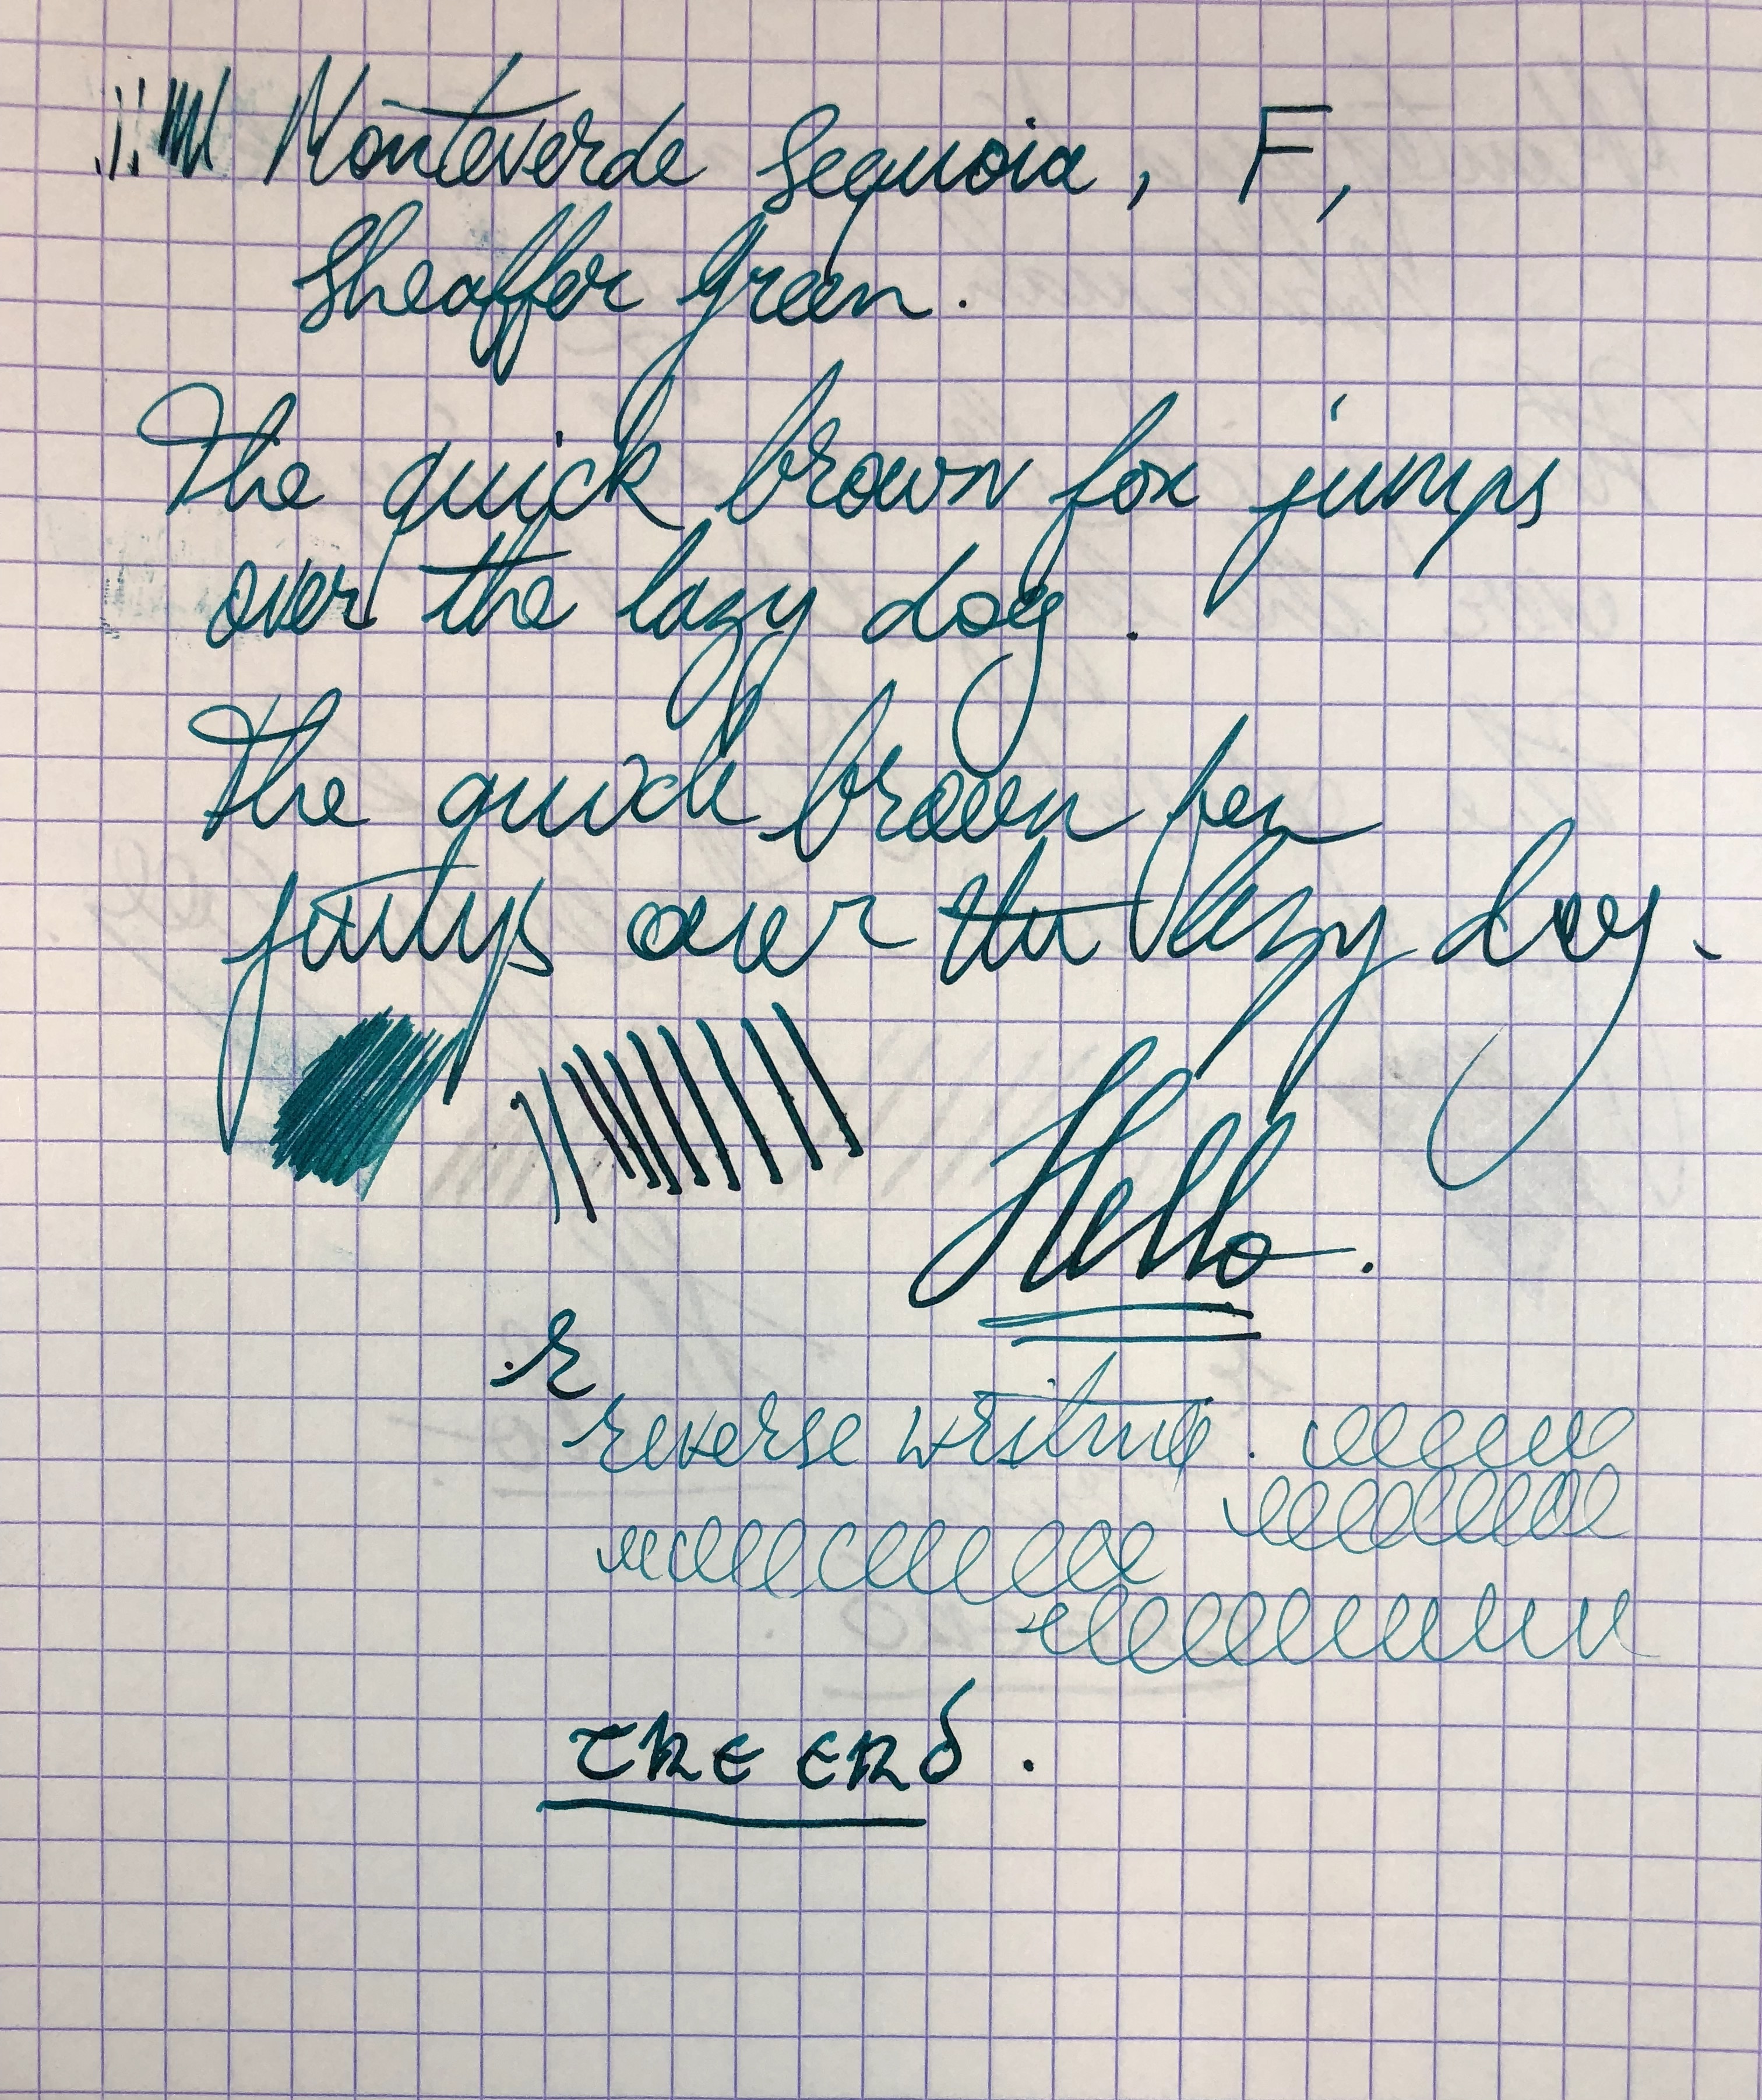 Monteverde Sequoia, F,
Sheaffer Green.
The quick brown fox jumps
over the lazy dog.
The quick brown fox
jumps over the lazy dog.
Hello.
R
reverse writing.
the end.